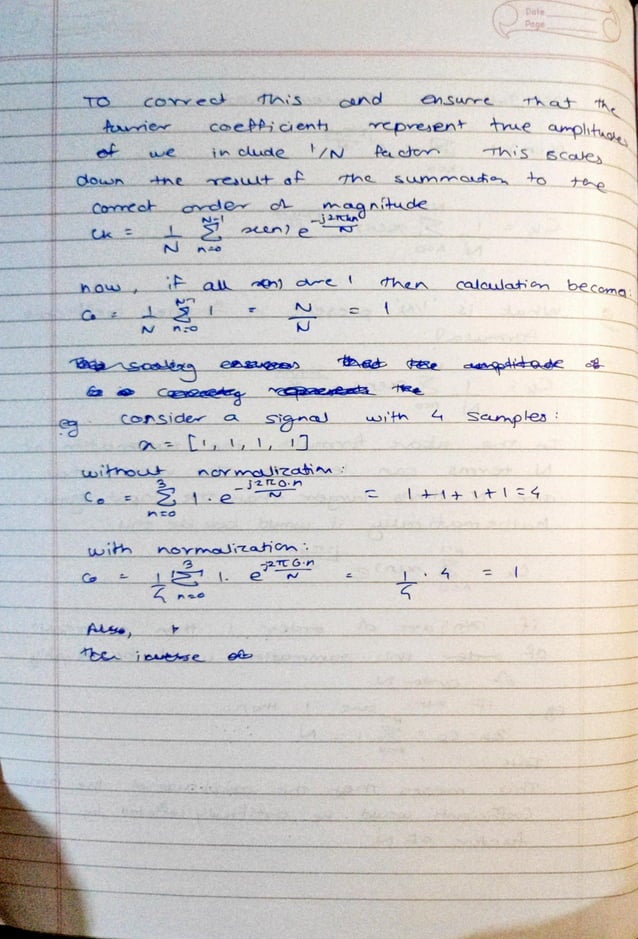 Date
Page
To correct this and ensure that the
fourier coefficients represent true amplitudes
of we include 1/N factor. This scales
down the result of the summation to the
correct order of magnitude
ck = 1/N Σ_{n=0}^{N-1} x(n) e^{-j2πkn/N}
now, if all x(n) are 1 then calculation becoma:
C0 = 1/N Σ_{n=0}^{N-1} 1 = N/N = 1
scaling ensures that the amplitude of
represents the
eg. consider a signal with 4 samples:
x = [1, 1, 1, 1]
without normalization:
C0 = Σ_{n=0}^{3} 1. e^{-j2π0.n/N} = 1+1+1+1=4
with normalization:
C0 = 1/4 Σ_{n=0}^{3} 1. e^{-j2π0.n/N} = 1/4 . 4 = 1
Also,
the inverse of